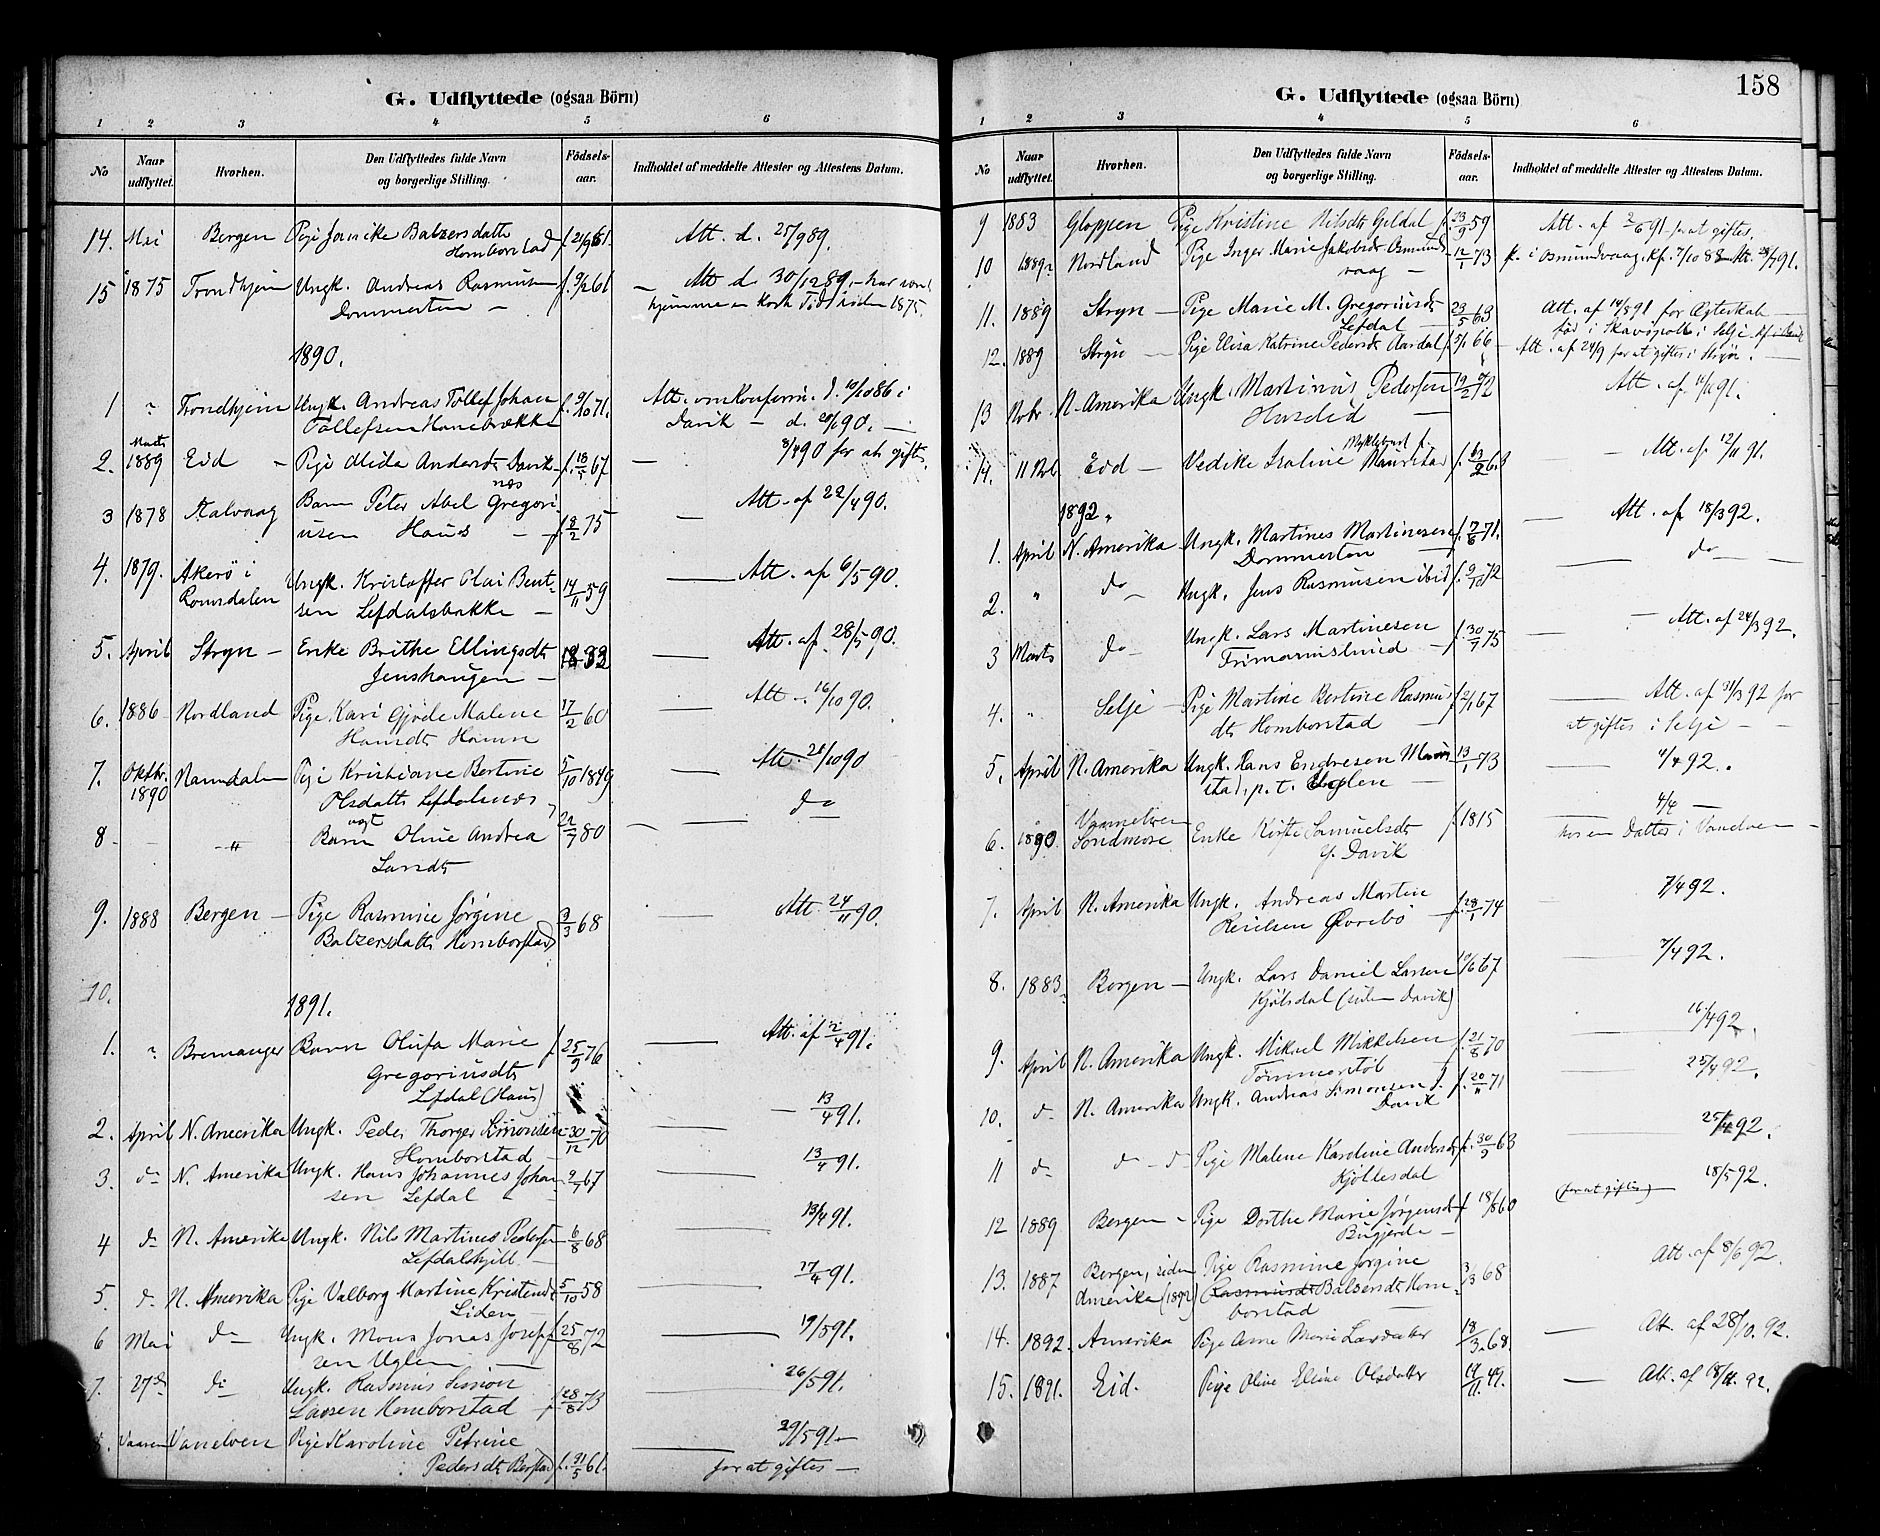 G. Udflyttede (ogsaa Börn)
1 2 3 4 5 6
No Naar udflyttet. Hvorhen. Den Udflyttedes fulde Navn og borgerlige Stilling. Födsels-aar. Indholdet af meddelte Attester og Attestens Datum.
14. Mai Bergen Pige Jonikke Balzersdatter Att. d. 25/9 89.
Homborstad
15 1875 Trondhjem Ungk. Andreas Rasmusen f. 9/2 61 Att d. 30/12 89, har været
Dommersten hjemme en kort Tid siden 1875.
1890.
1 Trondhjem Ungk. Andreas Tollef Johan f. 9/10 71. Att. om Konferm. d. 10/10 86 i
Tollefsen Hanebrække Davik d. 20/1 90.
2. Marts 1889 Eid Pige Alida Andersdt Davik- f. 18/1 67 8/4 90 for at giftes
næs
3 1878 Kalvaag Barn Peter Abel Gregori- Att. af 22/4 90.
usen Haus f. 8/2 75
4. 1879. Akerö i Romsdalen Ungk. Kristoffer Olai Bent- 14/11 59 Att. af 6/5 90.
sen Lefdalsbakke
5. April Stryn Enke Brithe Ellingsdt Att. af 28/5 90.
Jenshaugen
6. 1886 Nordland Pige Kari Gjøde Malene 17/2 60 Att. 16/10 90.
Hansdt Hamn
7. Oktbr. 1890 Namdalen Pige Kristiane Bertine 5/10 1849 Att. 21/10 90
Olsdatter Lefdalsnæs
8 " Barn Oline Andrea 22/7 80 do
Larsdt
9. 1888 Bergen Pige Rasmine Jørgine 3/3 68 Att. 24/11 90.
Balzersdatter Homborstad
10.
1891.
1. Bremanger Barn Olufa Marie f. 25/9 76 Att. af 2/4 91.
Gregoriusdt
Lefdal (Haus)
2. April N. Amerika Ungk. Peder Thorger Simonsen 30/12 70 13/4 91.
Homborstad
3. do N. Amerika Ungk. Hans Johannes Johan- 2/7 67 13/4 91.
sen Lefdal
4 do N. Amerika Ungk. Nils Martinus Pedersen 6/8 68 13/4 91.
Lefdalshjell
5. do N. Amerika Pige Valborg Martine Kristensdt 5/10 58 17/4 91.
Liden
6 Mai do Ungk. Mons Jonas Josef- 25/8 72 19/5 91.
sen Uglen
7. 27de do Ungk. Rasmus Simon 26/5 91.
Larsen Homborstad f. 28/8 73
8. Vaaren Vanelven Pige Karoline Petrine 29/5 91
Pedersdt Berstad f. 31/5 61. for at giftes
158
G. Udflyttede (ogsaa Börn)
1 2 3 4 5 6
No Naar udflyttet. Hvorhen. Den Udflyttedes fulde Navn og borgerlige Stilling. Födsels-aar. Indholdet af meddelte Attester og Attestens Datum.
9 1883 Gloppen Pige Kristine Nilsdt Gildal f. 23/9 59 Att. af 2/6 91 for at giftes.
10 1889 Nordland Pige Inger Marie Jakobsdt Osmunds- 12/1 73 f. i Osmundvaag. Kf. 7/10 88 Att. 28/7 91.
vaag
11. 1889 Stryn Pige Marie M. Gregoriusdt 23/5 63 Att. af 14/8 91 for Ægteskab
Lefdal født i Skavøpoll i Selje
12. 1889 Stryn Pige Elisa Katrine Pedersdt Aardal f. 3/1 66 Att. af 24/9 for at giftes i Stryn.
13 Nobr. N. Amerika Ungk. Martinus Pedersen Att. af 11/11 91.
Husdid
Myklebust f.
14. 11 Nob. Eid Vedike Isaline Maurstad Att. af 12/11 91.
1892.
1. April N. Amerika Ungk. Martines Martinesen f. 7/6 71. Att. af 18/3 92.
Dommersten
2. " do Ungk. Jens Rasmusen ibid f. 9/10 72 do
3 Marts do Ungk. Lars Martinesen f. 30/7 75 Att. af 24/3 92.
4. " Selje Pige Martine Bertine Rasmus- f. 2/1 67 Att. af 31/3 92 for
dt Homborstad at giftes i Selje
5. April N. Amerika Ungk. Hans Endresen Maur- 13/1 73 4/4 92.
stad, p. t. Uglen
6. 1890. Vannelven Søndmøre Enke Kirsti Samuelsdt f. 1815 4/4
Y. Davik hos en Datter i Vanelven
7. April N. Amerika Ungk. Andreas Martin 7/4 92.
Reielsen Øvrebø f. 28/1 74
8. 1883. Bergen Ungk. Lars Daniel Larsen 10/6 67 7/4 92.
Kjølsdal (siden Davik)
9. April N. Amerika Ungk. Mikael Mikkelsen f. 21/8 70 16/4 92.
10. do N. Amerika Ungk. Andreas Simonsen f. 71 25/4 92.
Davik
11 do do Pige Malene Karoline Andersdt f. 30/9 63 25/4 92.
Kjöllesdal
12 1889 Bergen Pige Dorthe Marie Jørgensdt f. 18/8 60 (for at giftes) 18/5 92.
13. 1887 Bergen, siden Pige Rasmine Jørgine 3/3 68 Att. af 8/6 92.
Amerika (1892) Rasmusdt Balsersdt Hom-
borstad
14. 1892. Amerika Pige Ane Marie Larsdatter 18/3 68. Att. af 28/10. 92.
15. 1891. Eid. Pige Oline Eline Olsdatter 14/11. 49. Att. af 18/11. 92.